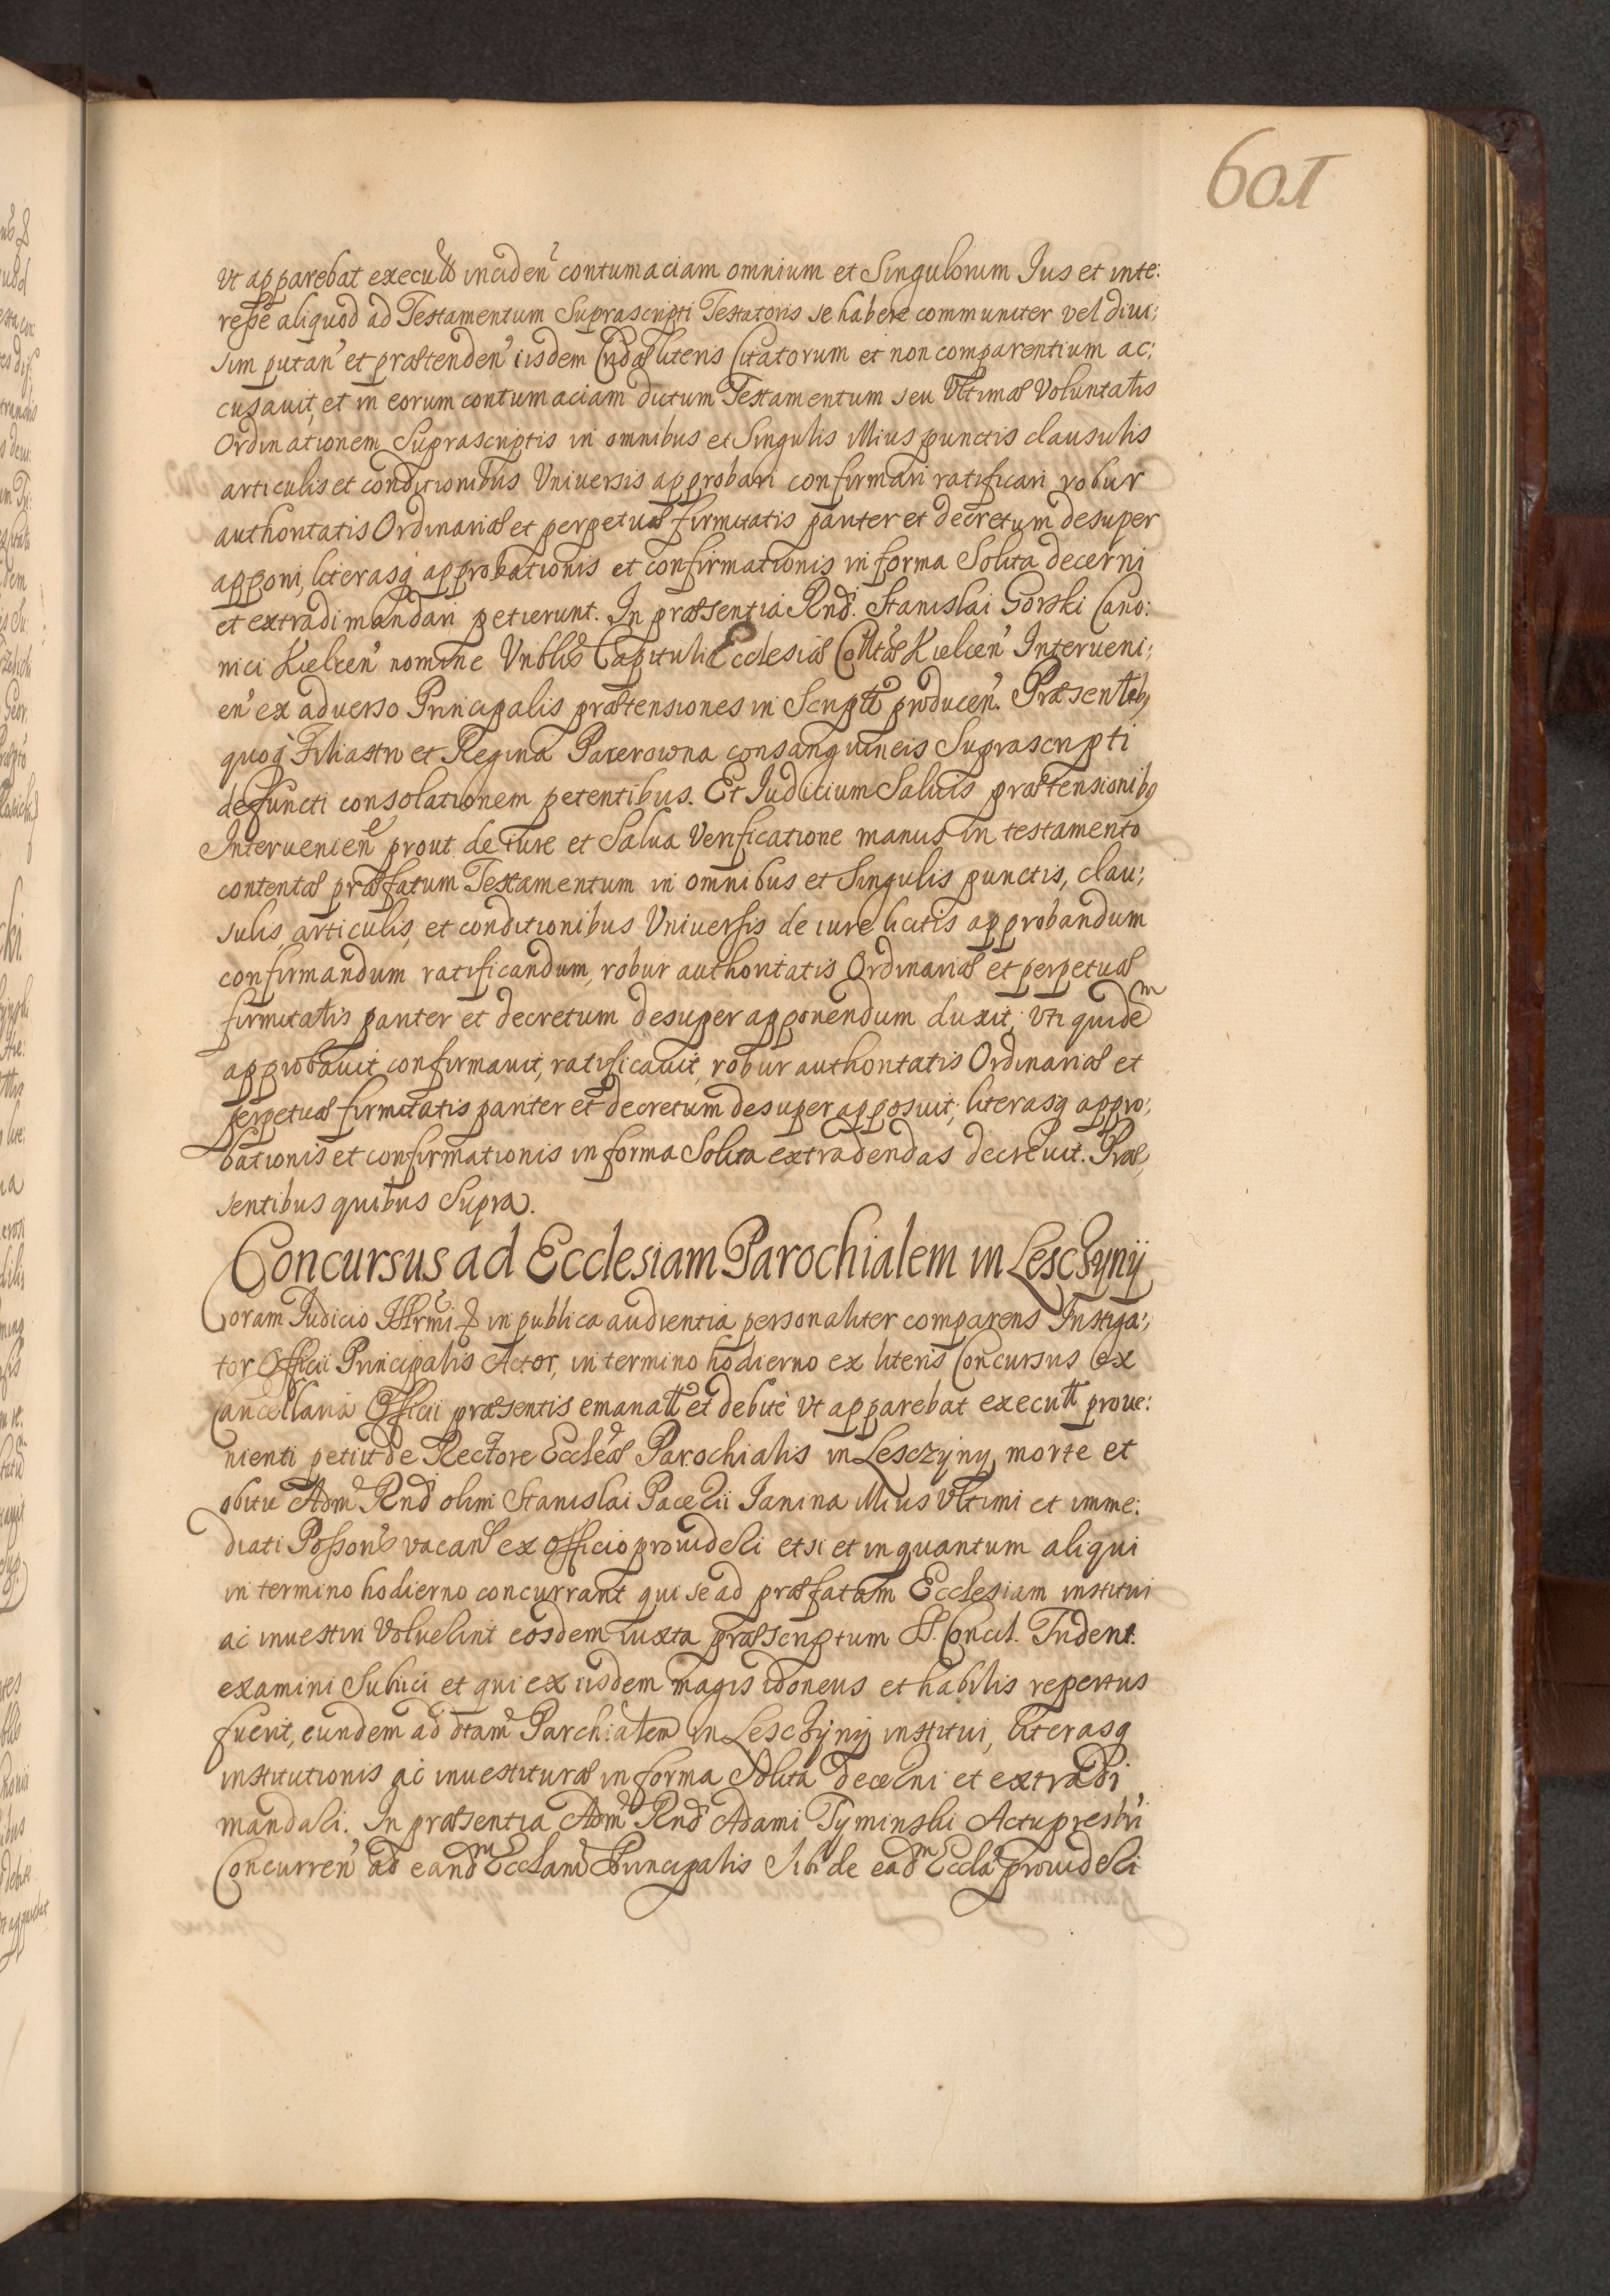 601
Vt apparebat execut͠ inciden͠ contumaciam omnium et Singulorum Ius et inte:
resse aliquod ad Testamentum Suprascripti Testatoris se habere communiter vel diui:
sim putan͠ et prætenden͠ iisdem Cridæ literis Citatorum et non comparentium ac:
cusauit, et in eorum contumaciam dictum Testamentum seu Vltimæ Voluntatis
Ordinationem Suprascriptis in omnibus et Singulis illius punctis clausulis
articulis et conditionibus Vniuersis approbari confirmari ratificari robur
authoritatis Ordinariæ et perpetuæ firmitatis pariter et decretum desuper
apponi, literasq approbationis et confirmationis in forma Solita decerni
et extradi mandari petierunt. In præsentia Rndi. Stanislai Gorski Cano:
nici Kielcen͠ nomine Vnblis Capituli Ecclesiæ Colltæ Kielcen͠ Interueni:
en͠ ex aduerso Principalis prætensiones in Scripto producen͠. Præsentibq
quoq Filiastro et Regina Pacerowna consanguineis Suprascripti
defuncti consolationem petentibus. Et Iudicium Saluis prætensionibq
Interuenien͠ prout de iure et Salua Verificatione manus in testamento
contentæ præfatum Testamentum in omnibus et Singulis punctis, clau:
sulis, articulis, et conditionibus Vniuersis de iure licitis approbandum
confirmandum ratificandum, robur authoritatis Ordinariæ et perpetuæ
firmitatis pariter et decretum desuper apponendum duxit; Vti quidem
approbauit, confirmauit, ratificauit, robur authoritatis Ordinariæ et
perpetuæ firmitatis pariter et decretum desuper apposuit; literasq appro:
bationis et confirmationis in forma Solita extradendas decreuit. Præ
sentibus quibus Supra.
Concursus ad Ecclesiam Parochialem in Lesczynij
Coram Iudicio Illrmi & in publica audientia personaliter comparens Instiga:
tor Officii Principalis Actor, in termino hodierno ex literis Concursus ex
Cancellaria Officii præsentis emanatt et debite Vt apparebat executt proue:
nienti petiit de Rectore Eccleæ Parochialis in Lesczyny morte et
obitu Adm Rnd olim Stanislai Pacezii Ianina illius Vltimi et imme:
diati Possoris vacan͠ ex officio prouideri et si et inquantum aliqui
in termino hodierno concurrant qui se ad præfatam Ecclesiam institui
ac inuestiri Voluerint eosdem iuxta præscriptum SS. Concil. Trident.
examini Subiici et qui ex iisdem magis idoneus et habilis repertus
fuerit, eundem ad dtam Parchialem in Lesczynij institui, literasq
institutionis ac inuestituræ in forma Solita decerni et extradi
mandari. In præsentia Adm Rnd Adami Tyminski Actupresbri
Concurren͠ ad eandm Ecclam Principalis sibi de eadm Eccla prouideri